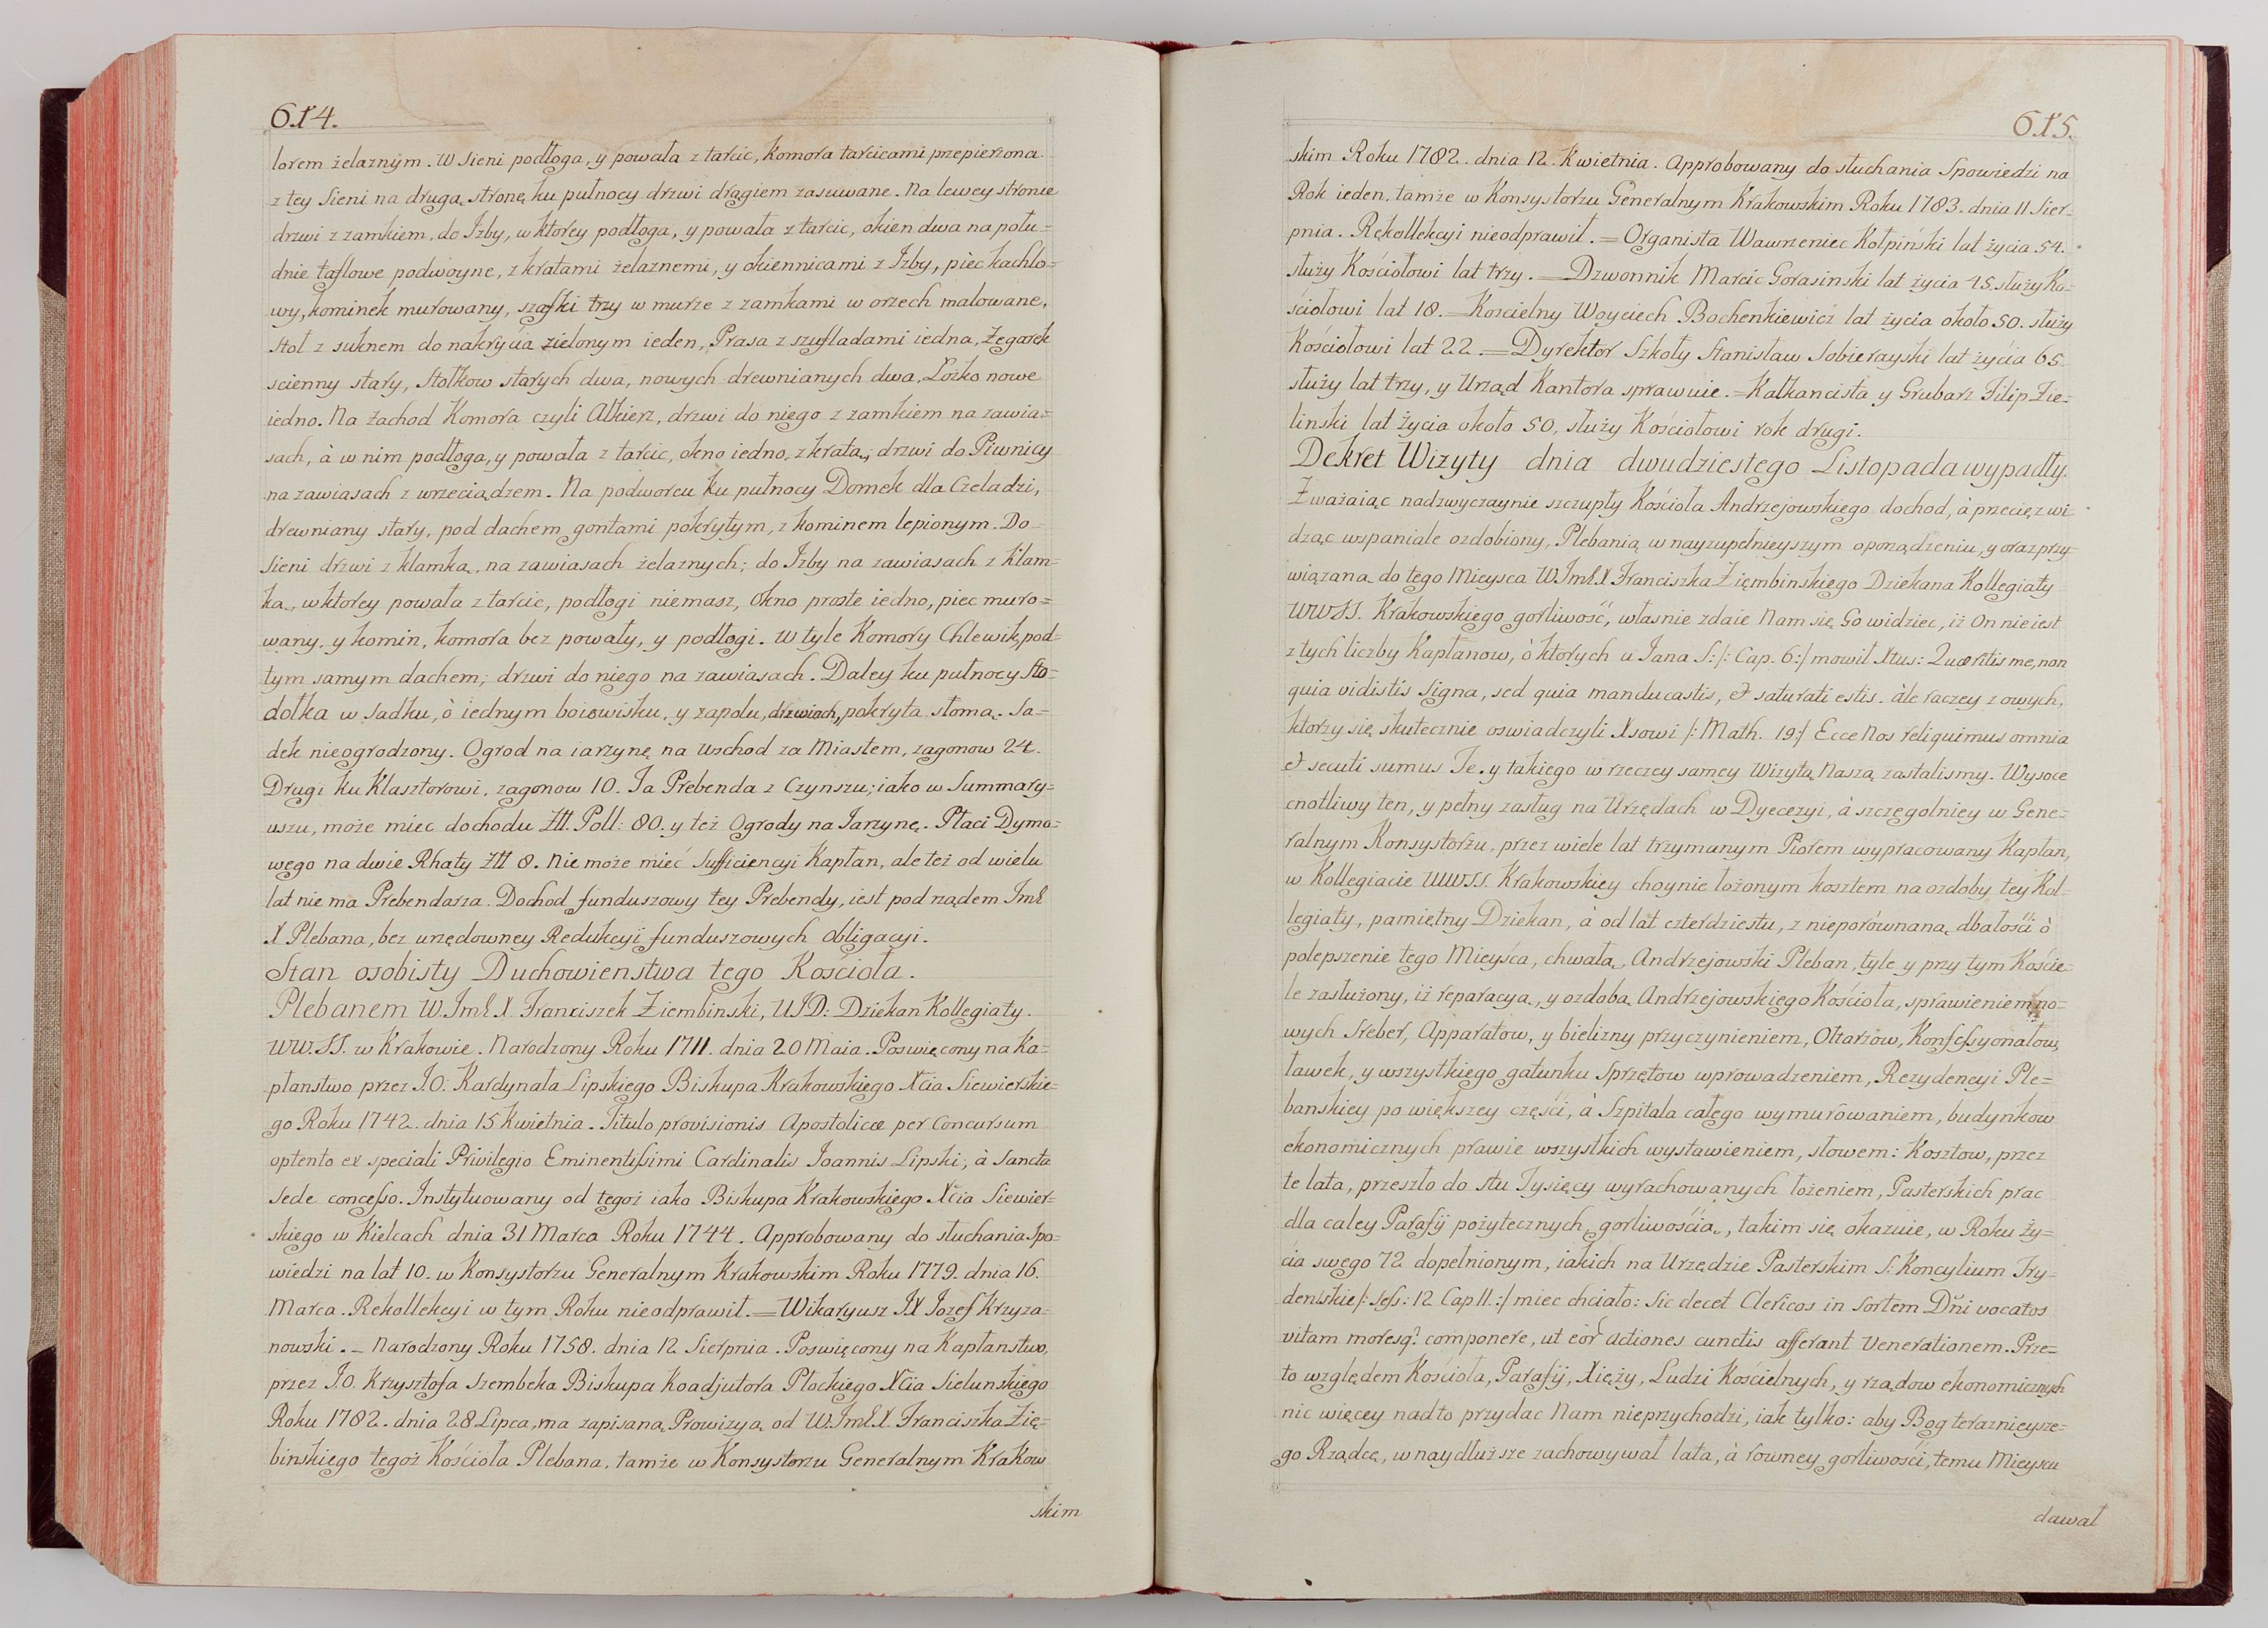 614.
lorem żelaznym. W Sieni podłoga, y powała z tarcic, Komora tarcicami przepierzona
z tey Sieni na drugą stronę ku pułnocy drzwi drągiem zasuwane. Na lewey stronie
drzwi z zamkiem, do Izby, w ktorey podłoga, y powała z tarcic, okien dwa na połu=
dnie taflowe podwoyne, z kratami żelaznemi, y okiennicami z Izby, piéc kachlo=
wy, kominek murowany, szafki trzy w murze z zamkami w orzech malowane,
Stoł z suknem do nakrycia zielonym ieden, Prasa z szufladami iedna, Zegarek
scienny stary, Stołkow starych dwa, nowych drewnianych dwa, Łóżko nowe
iedno. Na Zachod Komora czyli Alkierz, drzwi do niego z zamkiem na zawia=
sach, à w nim podłoga, y powała z tarcic, okno iedno, z kratą; drzwi do Piwnicy
na zawiasach z wrzeciądzem. Na podworcu ku pułnocy Domek dla Czeladzi,
drewniany stary, pod dachem gontami pokrytym, z kominem lepionym. Do=
Sieni drzwi z klamką, na zawiasach żelaznych; do Izby na zawiasach z klam=
ką, w ktorey powała z tarcic, podłogi niemasz, Okno proste iedno, piec muro=
wany, y komin, komora bez powały, y podłogi. W tyle Komory Chlewik, pod=
tym samym dachem; drzwi do niego na zawiasach. Daley ku pułnocy Sto=
dołka w Sadku, ò iednym boiowisku, y zapolu, drzwiach, pokryta słomą. Sa=
dek nieogrodzony. Ogrod na iarzynę na Wschod za Miastem, zagonow 24.
Drugi ku Klasztorowi, zagonow 10. Ta Prebenda z Czynszu; iako w Summary=
uszu, może miec dochodu Złł. Poll: 80. y też Ogrody na Iarzynę. Płaci Dymo=
wego na dwie Rhaty Złł 8. Nie może mieć Sufficiencyi Kapłan, ale też od wielu
lat nie ma Prebendarza. Dochod funduszowy tey Prebendy, iest pod rządem ImĆ
X Plebana, bez urzędowney Redukcyi funduszowych Obligacyi.
Stan osobisty Duchowienstwa tego Kościoła.
Plebanem W. ImĆ X. Franciszek Ziembinski, UID: Dziekan Kollegiaty.
WW.SS. w Krakowie. Narodzony Roku 1711. dnia 20 Maia. Poswięcony na Ka=
płanstwo przez I.O. Kardynała Lipskiego Biskupa Krakowskiego Xcia Siewierskie=
go Roku 1742. dnia 15 Kwietnia. Titulo provisionis Apostolicæ per Concursum
optento ex speciali Privilegio Eminentissimi Cardinalis Ioannis Lipski, à Sancta
Sede concesso. Instytuowany od tegoż iako Biskupa Krakowskiego Xcia Siewier=
skiego w Kielcach dnia 31 Marca Roku 1744. Approbowany do słuchania Spo=
wiedzi na lat 10. w Konsystorzu Generalnym Krakowskim Roku 1779. dnia 16.
Marca. Rekollekcyi w tym Roku nieodprawił. = Wikaryusz I.X Iozef Krzyża=
nowski. – Narodzony Roku 1758. dnia 12 Sierpnia. Poswięcony na Kapłanstwo,
przez I.O. Krzysztofa Szembeka Biskupa Koadjutora Płockiego Xcia Sielunskiego
Roku 1782. dnia 28 Lipca, ma zapisaną Prowizyą od W. ImĆ X. Franciszka Zię=
binskiego tegoż Kościoła Plebana, tamże w Konsystorzu Generalnym Krakow
skim
615.
skim Roku 1782. dnia 12. Kwietnia. Approbowany do słuchania Spowiedzi na
Rok ieden, tamże w Konsystorzu Generalnym Krakowskim Roku 1783. dnia 11 Sier=
pnia. Rękollekcyi nieodprawił. = Organista Wawrzeniec Kołpiński lat życia 54.
służy Kościołowi lat trzy. = Dzwonnik Marcic Gorasinski lat życia 45. służy Ko=
ściołowi lat 18. = Koscielny Woyciech Bochenkiewicz lat życia około 50. służy
Kościołowi lat 22. = Dyrektor Szkoły Stanisław Sobierayski lat życia 65.
służy lat trzy, y Urząd Kantora sprawuie. = Kalkancista y Grubarz Filip Zie=
linski lat życia około 50, służy Kościołowi rok drugi.
Dekret Wizyty dnia dwudziestego Listopada wypadły.
Zważaiąc nadzwyczaynie szczupły Kościoła Andrzejowskiego dochod, à przecięz wi=
dząc wspaniale ozdobiony, Plebanią w nayzupełnieyszym oporządzeniu, y oraz przy=
wiązaną do tego Mieysca WImĆX Franciszka Ziembinskiego Dziekana Kollegiaty
WWSS. Krakowskiego gorliwość, własnie zdaie Nam się Go widziec, iż On nie iest
z tych liczby Kapłanow, ò ktorych u Iana S: /: Cap. 6 :/ mowił Xtus: Quæritis me, non
quia vidistis Signa, sed quia manducastis, et saturati estis. àle raczey z owych,
ktorzy się skutecznie oswiadczyli Xsowi /: Math. 19 :/ Ecce Nos reliquimus omnia
et secuti sumus Te. y takiego w rzeczey samey Wizytą Naszą zastalismy. Wysoce
cnotliwy ten, y pełny zasług na Urzędach w Dyecezyi, à szczegolniey w Gene=
ralnym Konsystorzu, przez wiele lat trzymanym Piorem wypracowany Kapłan,
w Kollegiacie WWSS. Krakowskiey choynie łożonym kosztem na ozdoby tey Kol=
legiaty, pamiętny Dziekan, à od lat czterdziestu, z nieporównaną dbałości ò
polepszenie tego Mieyśca, chwałą, Andrzejowski Pleban, tyle y przy tym Koście=
le zasłużony, iż reparacyą, y ozdobą Andrzejowskiego Kościoła, sprawieniem no=
wych Sreber, Apparatow, y bielizny przyczynieniem, Ołtarzow, Konfessyonałow,
ławek, y wszystkiego gatunku Sprzętow wprowadzeniem, Rezydencyi Ple=
banskiey po większey części, à Szpitala całego wymurówaniem, budynkow
ekonomicznych prawie wszystkich wystawieniem, słowem: Kosztow, przez
te lata, przeszło do stu Tysięcy wyrachowanych łożeniem, Pasterskich prac
dla caley Parafij pożytecznych, gorliwością, takim się okazuie, w Roku ży=
cia swego 72 dopełnionym, iakich na Urzędzie Pasterskim S: Koncylium Try=
denskie /: Sess: 12 Cap 11. :/ miec chciało: Sic decet Clericos in Sortem Dñi vocatos
vitam moresq; componere, ut eor actiones cunctis afferant Venerationem. Prze=
to względem Kościoła, Parafij, Xięży, Ludzi Kościelnych, y rządow ekonomicznych
nic więcey nadto przydac Nam nieprzychodzi, iak tylko: aby Bog teraznieysze=
go Rządcę, w naydłuższe zachowywał lata, à rowney gorliwości, temu Mieyscu
dawał